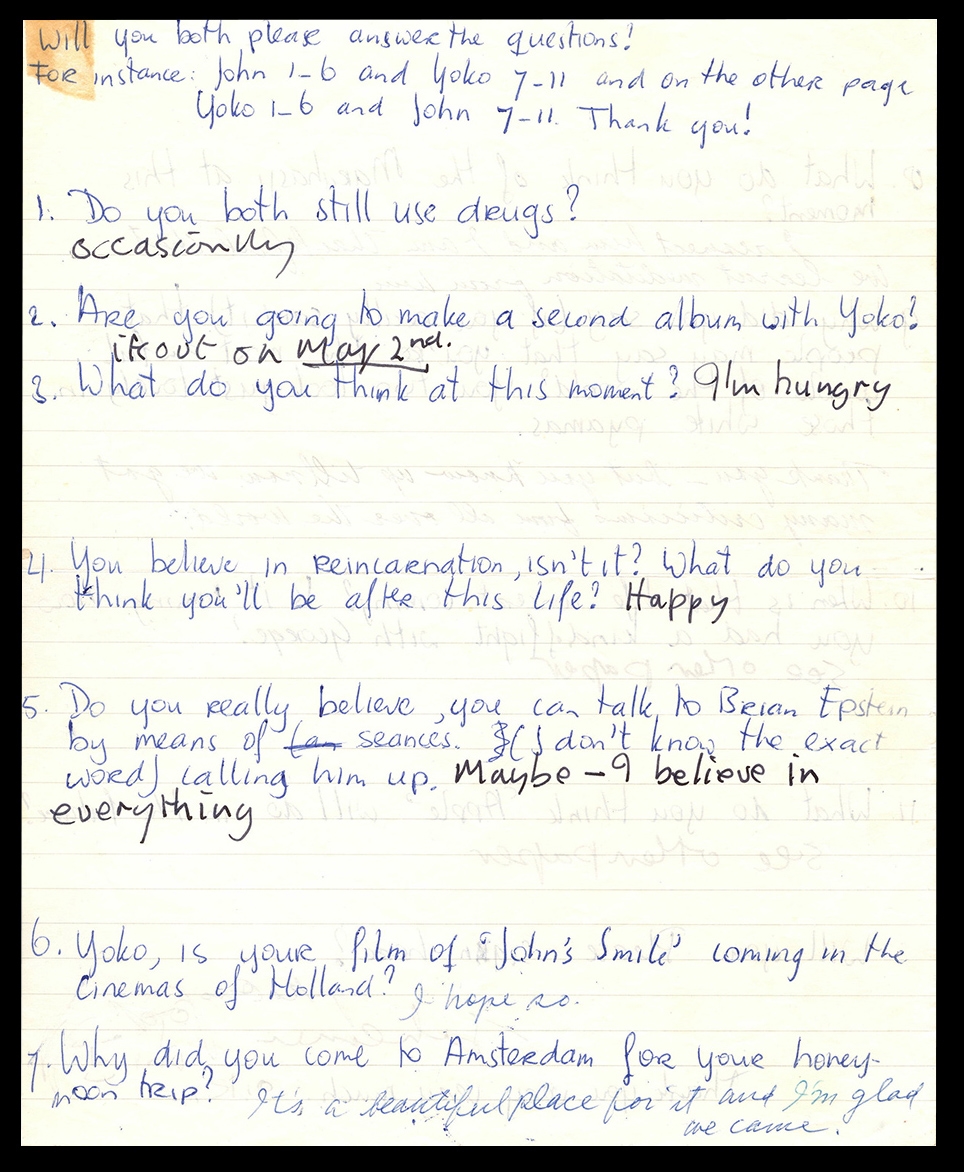 Will you both please answer the questions!
For instance: John 1-6 and Yoko 7-11 and on the other page
Yoko 1-6 and John 7-11. Thank you!
1. Do you both still use drugs?
occasionlly
2. Are you going to make a second album with Yoko?
it out on May 2nd.
3. What do you think at this moment? I'm hungry
4. You believe in reincarnation, isn't it? What do you
think you'll be after this life? Happy
5. Do you really believe, you can talk to Brian Epstein
by means of seances. (I don't know the exact
word) calling him up. Maybe - I believe in
everything
6. Yoko, is your film of "John's Smile" coming in the
cinemas of Holland? I hope so.
7. Why did you come to Amsterdam for your honey-
moon trip? It's a beautiful place for it and I'm glad
we came.